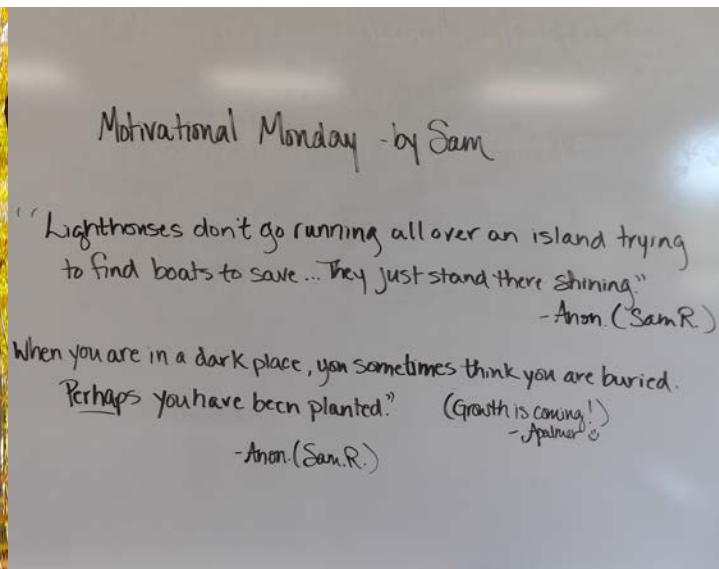 Motivational Monday - by Sam
"Lighthouses don't go running all over an island trying
to find boats to save... They just stand there shining."
-Anon. (Sam R.)
When you are in a dark place, you sometimes think you are buried.
Perhaps you have been planted." (Growth is coming!)
- Apalmer ☺
-Anon. (Sam. R.)